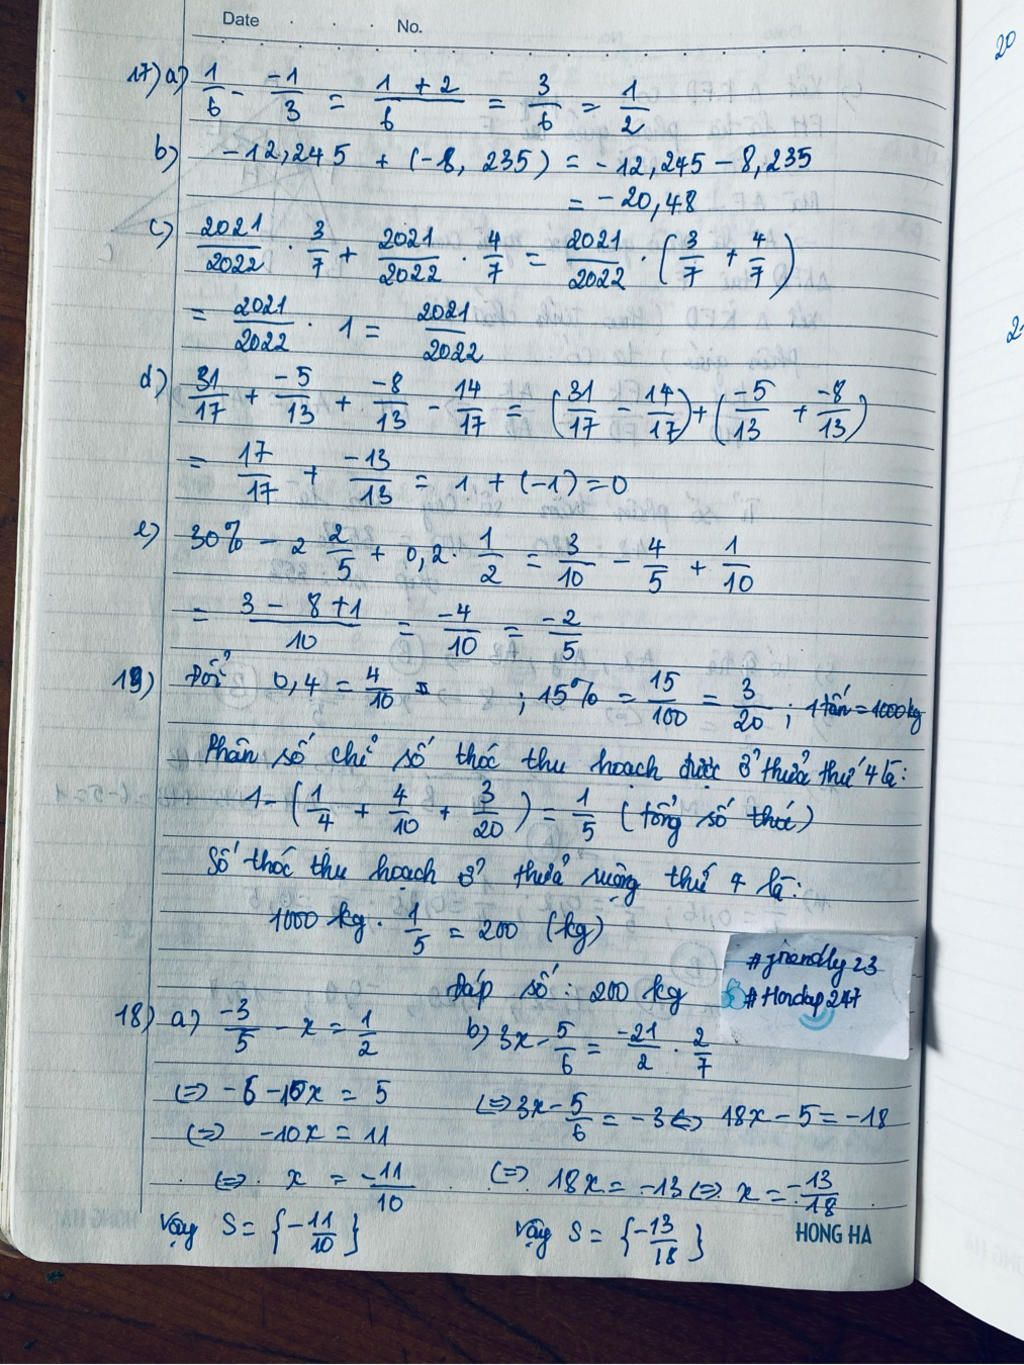 Date . . . No.
17) a) 1/6 - -1/3 = (1 + 2)/6 = 3/6 = 1/2
b) -12,245 + (-8,235) = -12,245 - 8,235
= -20,48
c) 2021/2022 . 3/7 + 2021/2022 . 4/7 = 2021/2022 . (3/7 + 4/7)
= 2021/2022 . 1 = 2021/2022
d) 31/17 + -5/13 + -8/13 - 14/17 = (31/17 - 14/17) + (-5/13 + -8/13)
= 17/17 + -13/13 = 1 + (-1) = 0
e) 30% - 2 2/5 + 0,2 . 1/2 = 3/10 - 4/5 + 1/10
= (3 - 8 + 1)/10 = -4/10 = -2/5
19) Đổi 0,4 = 4/10 ; 15% = 15/100 = 3/20 ; 1 tấn = 1000kg
Phân số chỉ số thóc thu hoạch được ở thửa thứ 4 là:
1 - (1/4 + 4/10 + 3/20) = 1/5 (tổng số thóc)
Số thóc thu hoạch ở thửa ruộng thứ 4 là:
1000 kg . 1/5 = 200 (kg)
Đáp số: 200 kg
#friendly23
#Hoidap247
18) a) -3/5 - x = 1/2 b) 3x - 5/6 = -21/2 . 2/7
⇔ -6 - 10x = 5 ⇔ 3x - 5/6 = -3 ⇔ 18x - 5 = -18
⇔ -10x = 11
⇔ x = -11/10 ⇔ 18x = -13 ⇔ x = -13/18
Vậy S = {-11/10} Vậy S = {-13/18}
HONG HA
20